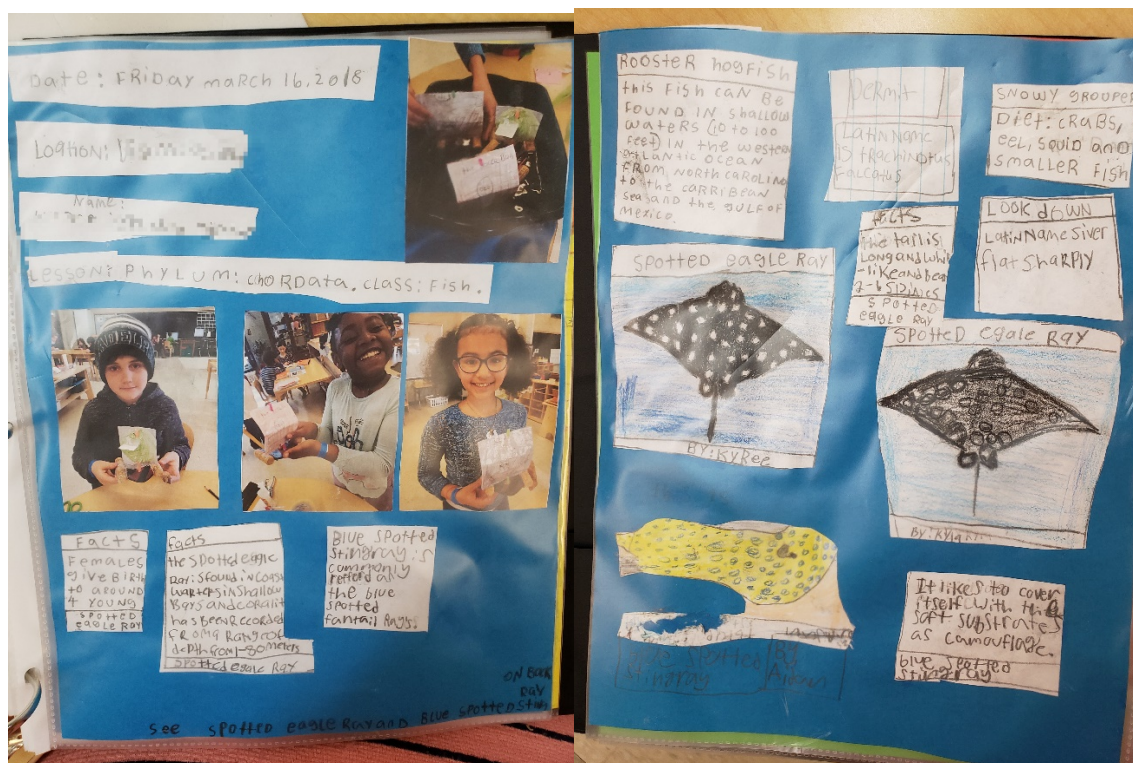 DATE: FRIDAY MARCH 16, 2018
LOCTION:
Name:
LESSON: PHYLUM: CHORDATA. CLASS: FISH.
FACTS
FEMALES
give BIRTH
TO AROUND
4 YOUNG
SPOTTED
eagle RAY
facts
the SPOTTED eagle
RAY is found in COAST
WARTERS in SHALLOW
BAYS and CORAL it
has BEEN RECORDED
FROM a RANGE OF
depth from 1-80 meters
SPOTTED egale RAY
BLUE SPOTTED
Stingray is
commonly
as
the blue
spotted
fantail Rays.
ON BACK
RAY
see SPOTTED eagle RAY and BLUE SPOTTED Sting
ROOSTER HOGFISH
this FISH CAN BE
FOUND IN SHALLOW
WATERS (10 TO 100
feet) IN the western
ATLANTIC OCEAN
FROM NORTH CAROLINO
to the CARRIBEAN
sea and the GULF OF
mexico.
Permit
LATIN NAME
IS TRACHINOTUS
FALCATUS
SNOWY GROUPER
Diet: CRABS,
eel, squid and
smaller FISH
LOOK DOWN
LATIN NAME SIVER
flat SHARPLY
facts
the tail is
LONG and Whip
-like and
2-6 SPINES
SPOTTED
eagle RAY
SPOTTED eagle RAY
BY: KYRee
SPOTTED egale RAY
BY:
Blue SPOTTED
Stingray
By
It likes to cover
itself with the
soft substrates
as camouflage.
blue spotted
stingray